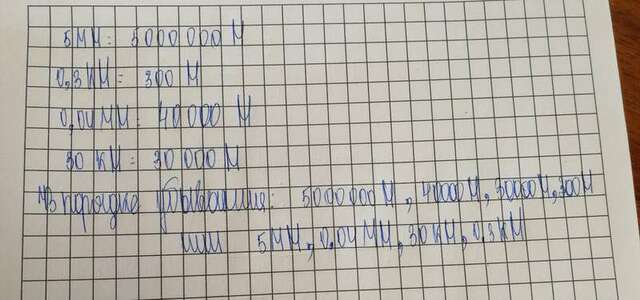 5МН = 5000 000 Н
0,3 КН = 300 Н
0,04МН = 40000 Н
30 КН = 30 000 Н
В порядке убывания: 5000000Н, 40000Н, 30000Н, 300Н
или 5МН, 0,04МН, 30КН, 0,3КН